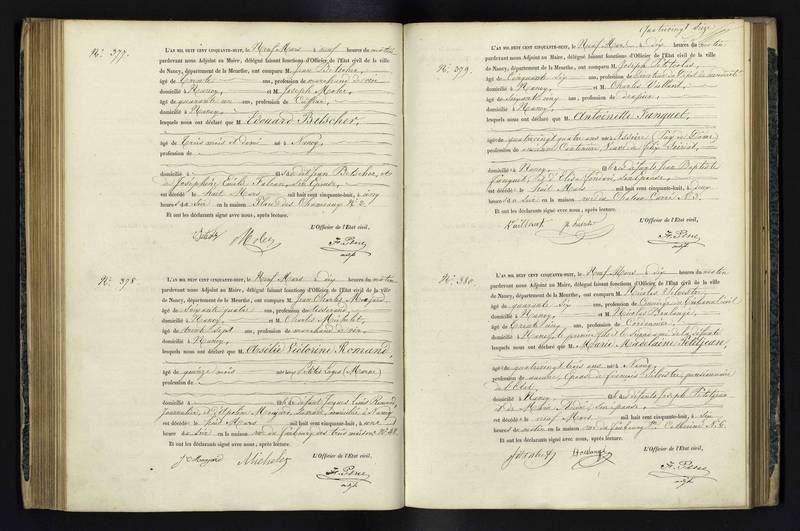 No. 377.
L'AN MIL HUIT CENT CINQUANTE-HUIT, le Neuf Mars à neuf heures du matin
pardevant nous Adjoint au Maire, délégué faisant fonctions d'Officier de l'Etat civil de la ville
de Nancy, département de la Meurthe, ont comparu M. Jean Betscher,
âgé de trente ans, profession de marchand de vin
domicilié à Nancy, et M. Joseph
âgé de quarante un ans, profession de
domicilié à Nancy,
lesquels nous ont déclaré que M. Edouard Betscher,
âgé de trois mois et demi né à Nancy,
profession de
domicilié à fils de Jean Betscher, et
de Joséphine Emélie son épouse,
est décédé le huit Mars mil huit cent cinquante-huit, à cinq
heures du soir en la maison Place des Chameaux No. 2.
Et ont les déclarants signé avec nous, après lecture.
L'Officier de l'Etat civil,
No. 378
L'AN MIL HUIT CENT CINQUANTE-HUIT, le Neuf Mars à dix heures du matin
pardevant nous Adjoint au Maire, délégué faisant fonctions d'Officier de l'Etat civil de la ville
de Nancy, département de la Meurthe, ont comparu M. Jean Charles
âgé de soixante quatre ans, profession de tisserand,
domicilié à Nancy, et M. Charles Micholet
âgé de trente sept ans, profession de marchand de vin,
domicilié à Nancy,
lesquels nous ont déclaré que M. Arsélie Victorine Romand,
âgé de quinze mois né aux Petites Loges (Marne)
profession de
domicilié à fille de défunt Jacques Louis Romand,
journalier, et d'Apoline domiciliée à Nancy
est décédé le huit Mars mil huit cent cinquante-huit, à onze
heures du soir en la maison rue du faubourg des trois maisons No. 48.
Et ont les déclarants signé avec nous, après lecture.
L'Officier de l'Etat civil,
Quatrevingt Seize
No. 379.
L'AN MIL HUIT CENT CINQUANTE-HUIT, le Neuf Mars à dix heures du matin
pardevant nous Adjoint au Maire, délégué faisant fonctions d'Officier de l'Etat civil de la ville
de Nancy, département de la Meurthe, ont comparu M. Joseph
âgé de cinquante six ans, profession de Directeur du Dépôt de mendicité
domicilié à Nancy, et M. Charles
âgé de soixante cinq ans, profession de drapier,
domicilié à Nancy,
lesquels nous ont déclaré que M. Antoinette
âgé de quatrevingt quatre ans né à Issoire (Puy de Dôme)
profession de ancienne
domicilié à Nancy, fille de défunts Jean Baptiste
est décédé le huit Mars mil huit cent cinquante-huit, à deux
heures du soir en la maison rue du Château Carré No. 3.
Et ont les déclarants signé avec nous, après lecture.
L'Officier de l'Etat civil,
No. 380.
L'AN MIL HUIT CENT CINQUANTE-HUIT, le Neuf Mars à dix heures du matin
pardevant nous Adjoint au Maire, délégué faisant fonctions d'Officier de l'Etat civil de la ville
de Nancy, département de la Meurthe, ont comparu M. Nicolas Silvestre,
âgé de quarante six ans, profession de Concierge du tribunal civil
domicilié à Nancy, et M. Nicolas Boulangé,
âgé de trente cinq ans, profession de Cordonnier,
domicilié à Nancy, le premier fils et le second ami de la défunte
lesquels nous ont déclaré que M. Marie Madelaine Petitjean,
âgé de quatrevingt trois ans né à Nancy,
profession de rentière, épouse de françois Silvestre, pensionnaire
de l'Etat,
domicilié à Nancy, fille de défunts Joseph Petitjean
et de Marie son épouse,
est décédé le neuf Mars mil huit cent cinquante-huit, à
heures du matin en la maison rue du faubourg Ste. Catherine No. 6.
Et ont les déclarants signé avec nous, après lecture.
L'Officier de l'Etat civil,